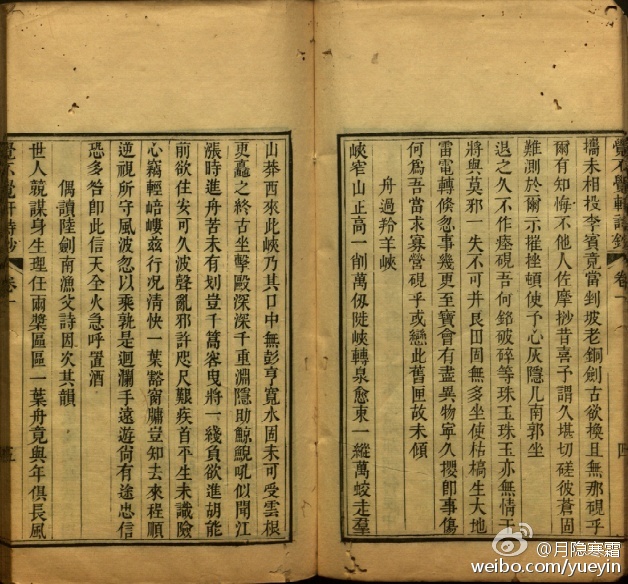 覺不覺軒詩鈔 卷一 四
攜未相投李賓竟當到坡老銅劍古欲換且無那硯乎
爾有知悔不他人佐摩挱昔喜予謂久堪切磋彼蒼固
難測於爾示摧挫頓使予心灰隱几南郭坐
退之久不作瘞硯吾何銘破碎等珠玉珠玉亦無情干
將與莫邪一失不可井艮田固無多坐使枯槁生大地
雷電轉倏忽事幾更至寶會有盡異物寧久攖即事傷
何爲吾當求寡營硯乎或戀此舊匣故未傾
舟過羚羊峽
峽窄山正高一削萬仞陡峽轉泉愈東一縱萬蛟走羣
山莽西來此峽乃其口中無彭亨寬水固未可受雲根
更矗之終古坐擊毆深深千重淵隱助鯨鯢吼似聞江
漲時進舟苦未有划豈千篙客曳將一綫負欲進胡能
前欲住安可久波聲亂邪許咫尺艱疾首平生未識險
心竊輕嶁茲行况清快一葉豁窗牖豈知去來程順
逆視所守風波忽以乘孰是迴瀾手遠遊尙有途忠信
恐多咎卽此信天全火急呼置酒
偶讀陸劍南漁父詩因次其韻
世人競謀身生理任爾槳區區一葉舟竟與年俱長風
覺不覺軒詩鈔 卷一
@月隐寒霜
weibo.com/yueyin